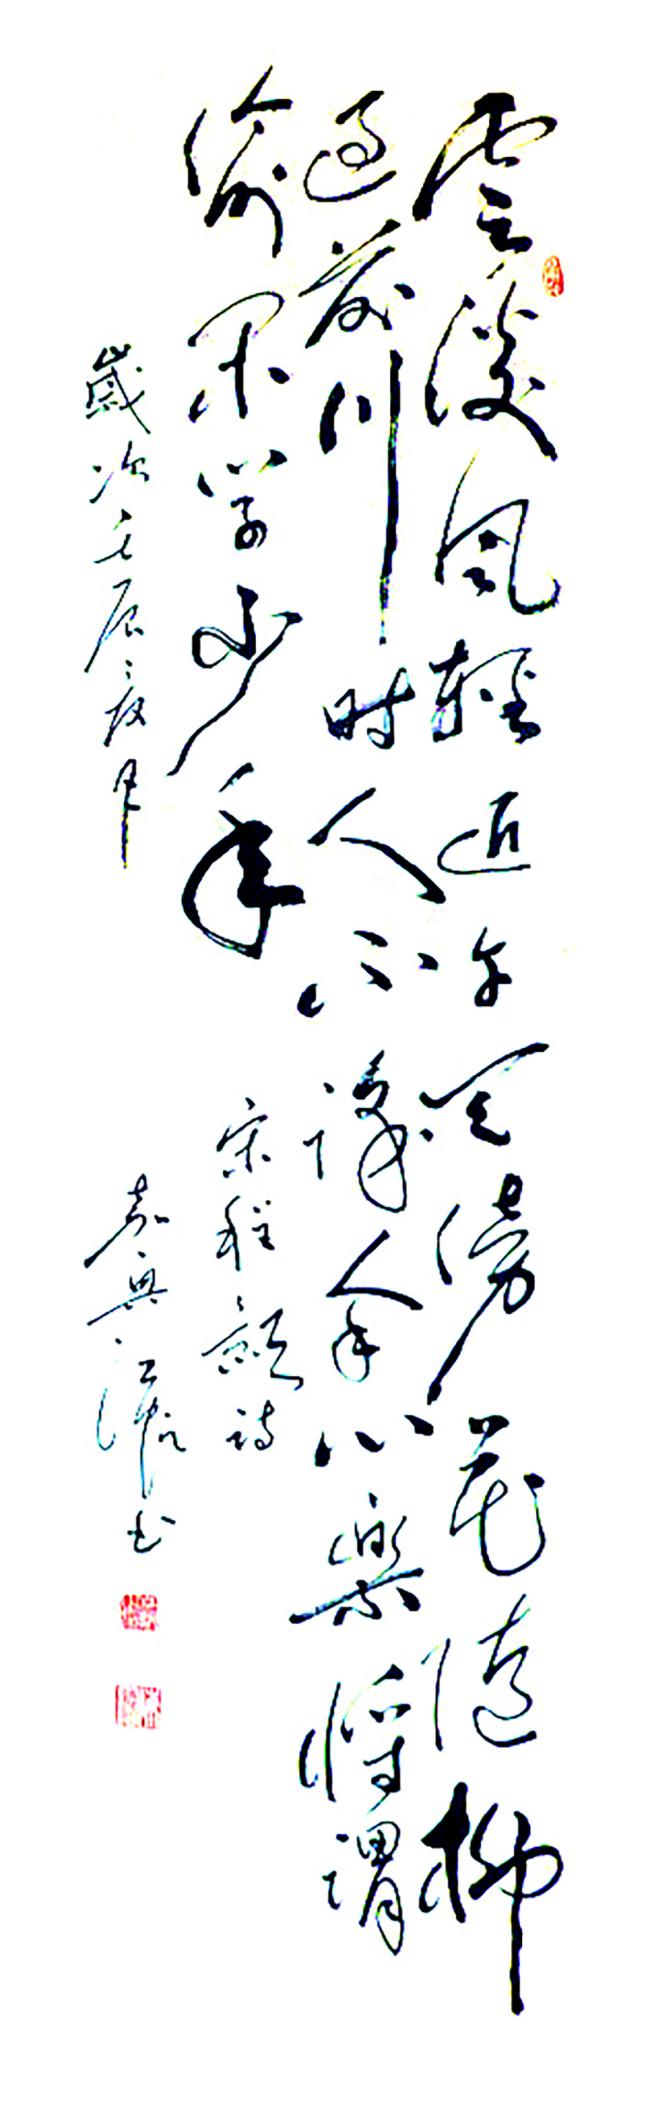 雲淡風輕近午天傍花隨柳
過前川时人不識余心樂將謂
偷閑学少年 宋程顥詩
歲次壬辰夏月 嘉興 书